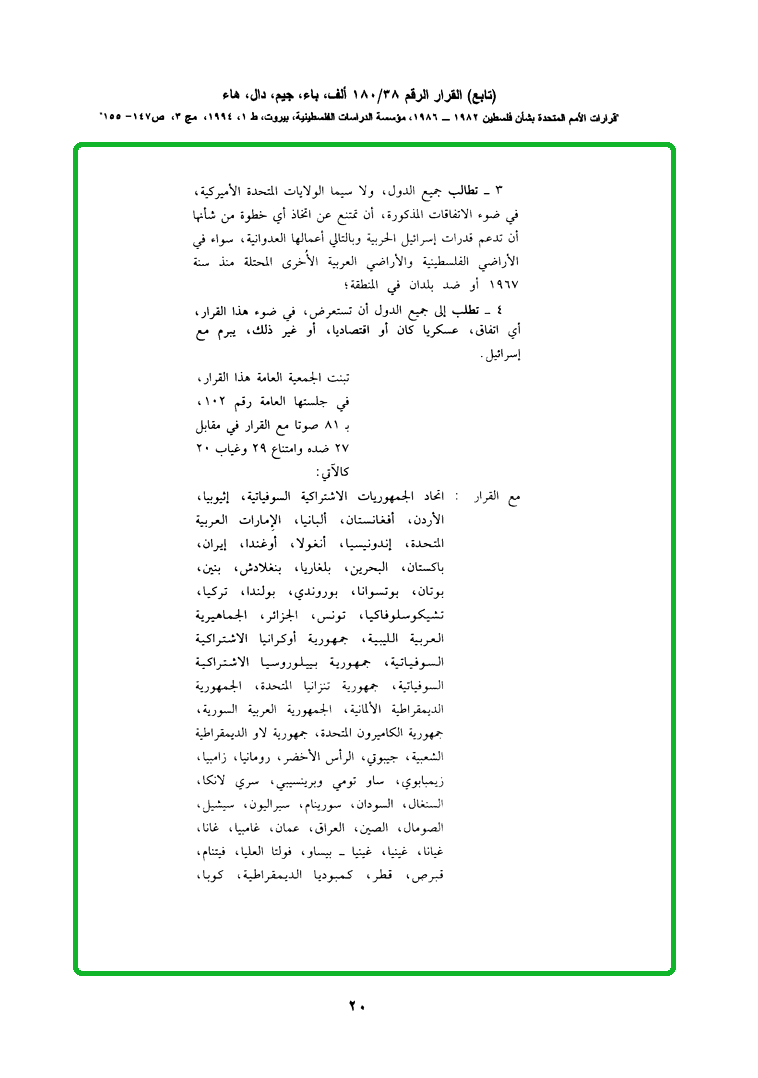 (تابع) القرار الرقم ١٨٠/٣٨ ألف، باء، جيم، دال، هاء
"قرارات الأمم المتحدة بشأن فلسطين ١٩٨٢ ــ ١٩٨٦، مؤسسة الدراسات الفلسطينية، بيروت، ط ١، ١٩٩٤، مج ٣، ص١٤٧- ١٥٥"
٣ ــ تطالب جميع الدول، ولا سيما الولايات المتحدة الأميركية،
في ضوء الاتفاقات المذكورة، أن تمتنع عن اتخاذ أي خطوة من شأنها
أن تدعم قدرات إسرائيل الحربية وبالتالي أعمالها العدوانية، سواء في
الأراضي الفلسطينية والأراضي العربية الأُخرى المحتلة منذ سنة
١٩٦٧ أو ضد بلدان في المنطقة؛
٤ ــ تطلب إلى جميع الدول أن تستعرض، في ضوء هذا القرار،
أي اتفاق، عسكريا كان أو اقتصاديا، أو غير ذلك، يبرم مع
إسرائيل.
تبنت الجمعية العامة هذا القرار،
في جلستها العامة رقم ١٠٢،
بـ ٨١ صوتا مع القرار في مقابل
٢٧ ضده وامتناع ٢٩ وغياب ٢٠
كالآتي:
مع القرار : اتحاد الجمهوريات الاشتراكية السوفياتية، إثيوبيا،
الأردن، أفغانستان، ألبانيا، الإمارات العربية
المتحدة، إندونيسيا، أنغولا، أوغندا، إيران،
باكستان، البحرين، بلغاريا، بنغلادش، بنين،
بوتان، بوتسوانا، بوروندي، بولندا، تركيا،
تشيكوسلوفاكيا، تونس، الجزائر، الجماهيرية
العربية الليبية، جمهورية أوكرانيا الاشتراكية
السوفياتية، جمهورية بييلوروسيا الاشتراكية
السوفياتية، جمهورية تنزانيا المتحدة، الجمهورية
الديمقراطية الألمانية، الجمهورية العربية السورية،
جمهورية الكاميرون المتحدة، جمهورية لاو الديمقراطية
الشعبية، جيبوتي، الرأس الأخضر، رومانيا، زامبيا،
زيمبابوي، ساو تومي وبرينسيبي، سري لانكا،
السنغال، السودان، سورينام، سيراليون، سيشيل،
الصومال، الصين، العراق، عمان، غامبيا، غانا،
غيانا، غينيا، غينيا ــ بيساو، فولتا العليا، فيتنام،
قبرص، قطر، كمبوديا الديمقراطية، كوبا،
٢٠